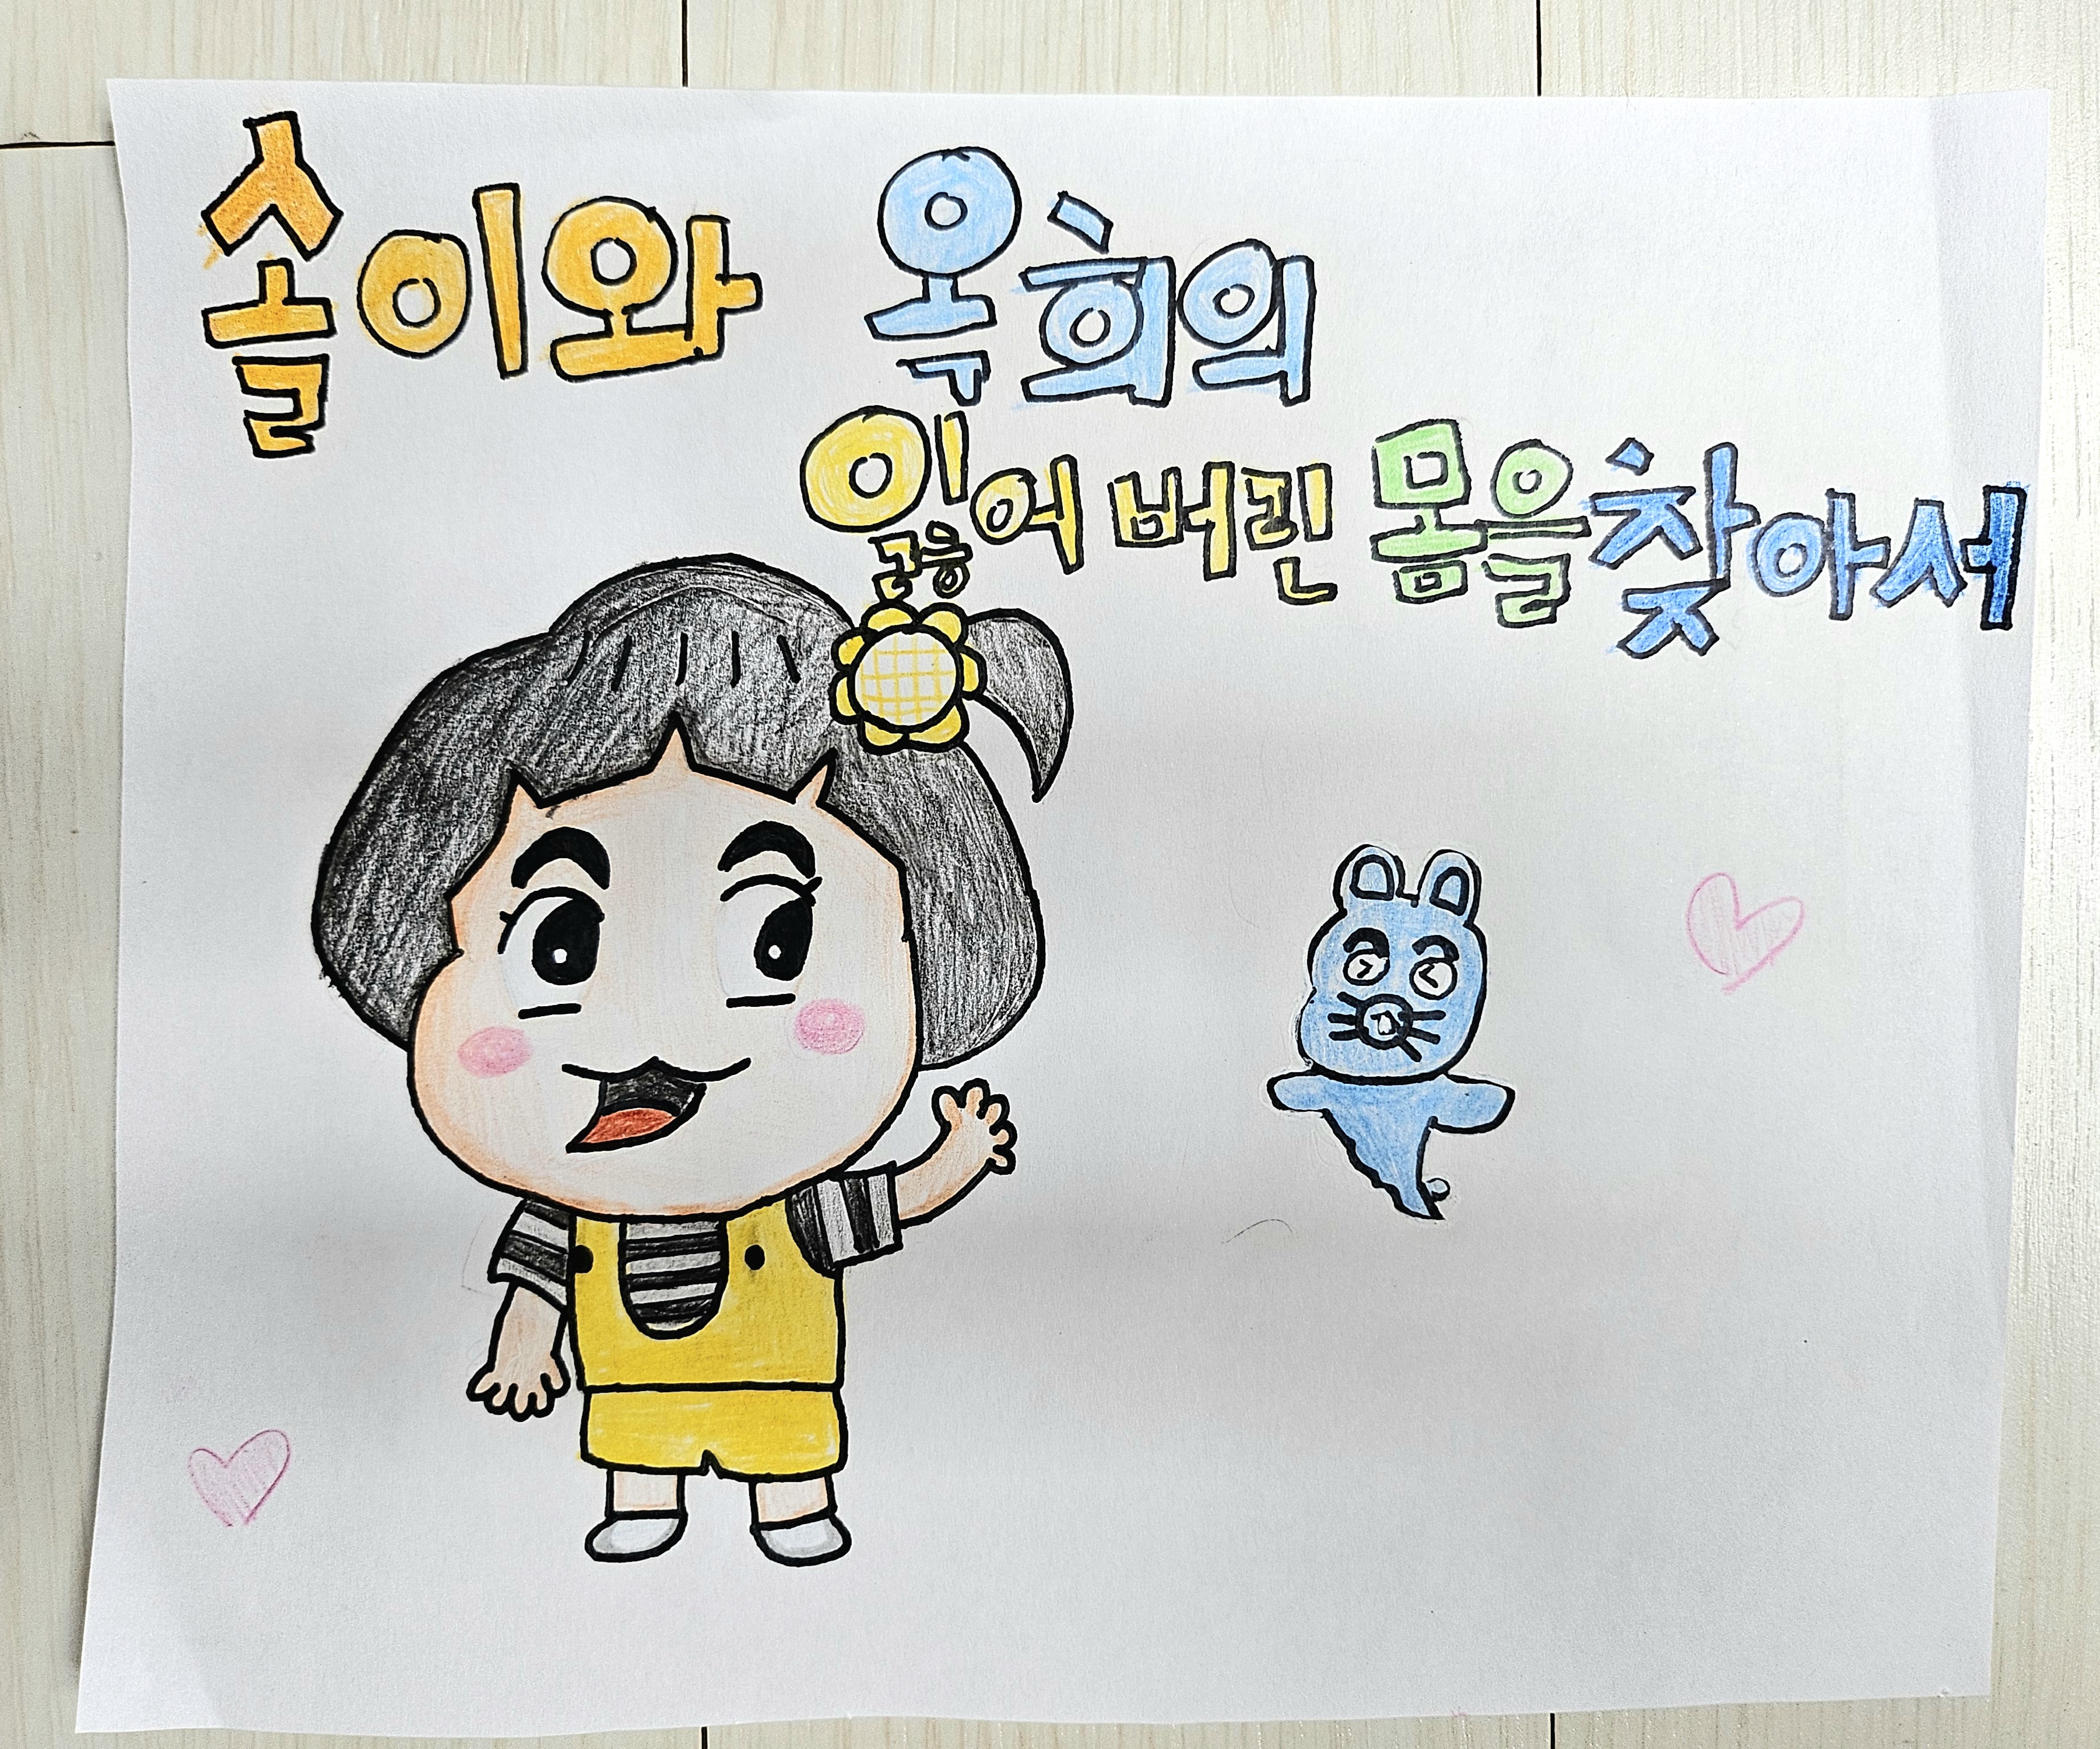 솔이와 옥희의
잃어 버린 몸을 찾아서